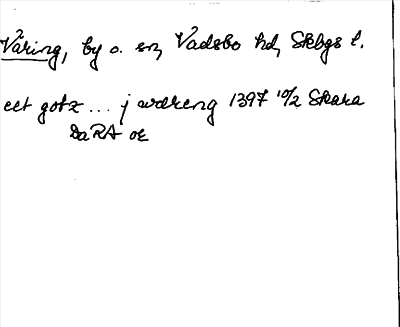 Våring, by o. sn, Vadsbo hd, Skbgs l.
eet gotz ... j wdreng 1397 10/2 Skara
DaRA or